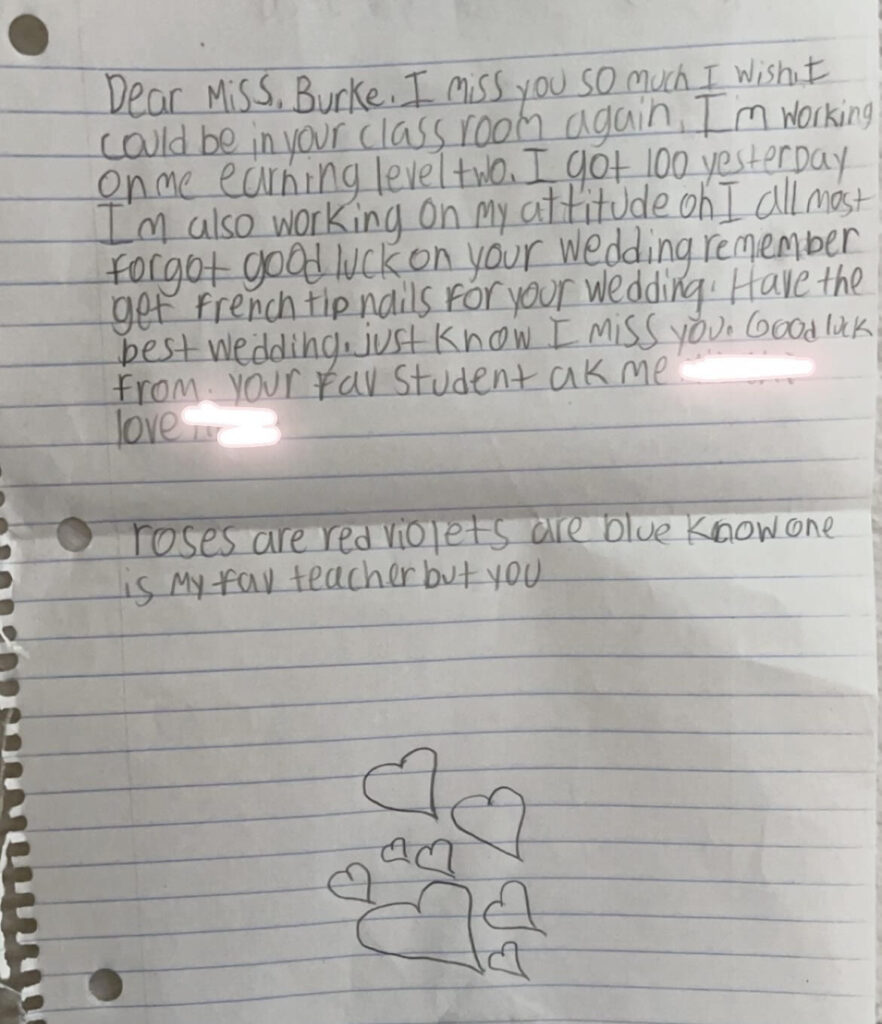 Dear Miss. Burke. I miss you so much I wish.t
could be in your class room again. I'm working
on me earning level two. I got 100 yesterday
I'm also working on my attitude oh I all most
forgot good luck on your wedding remember
get french tip nails for your wedding. Have the
best wedding. just know I miss you. Good luck
from. your fav student ak me
love
roses are red violets are blue know one
is my fav teacher but you